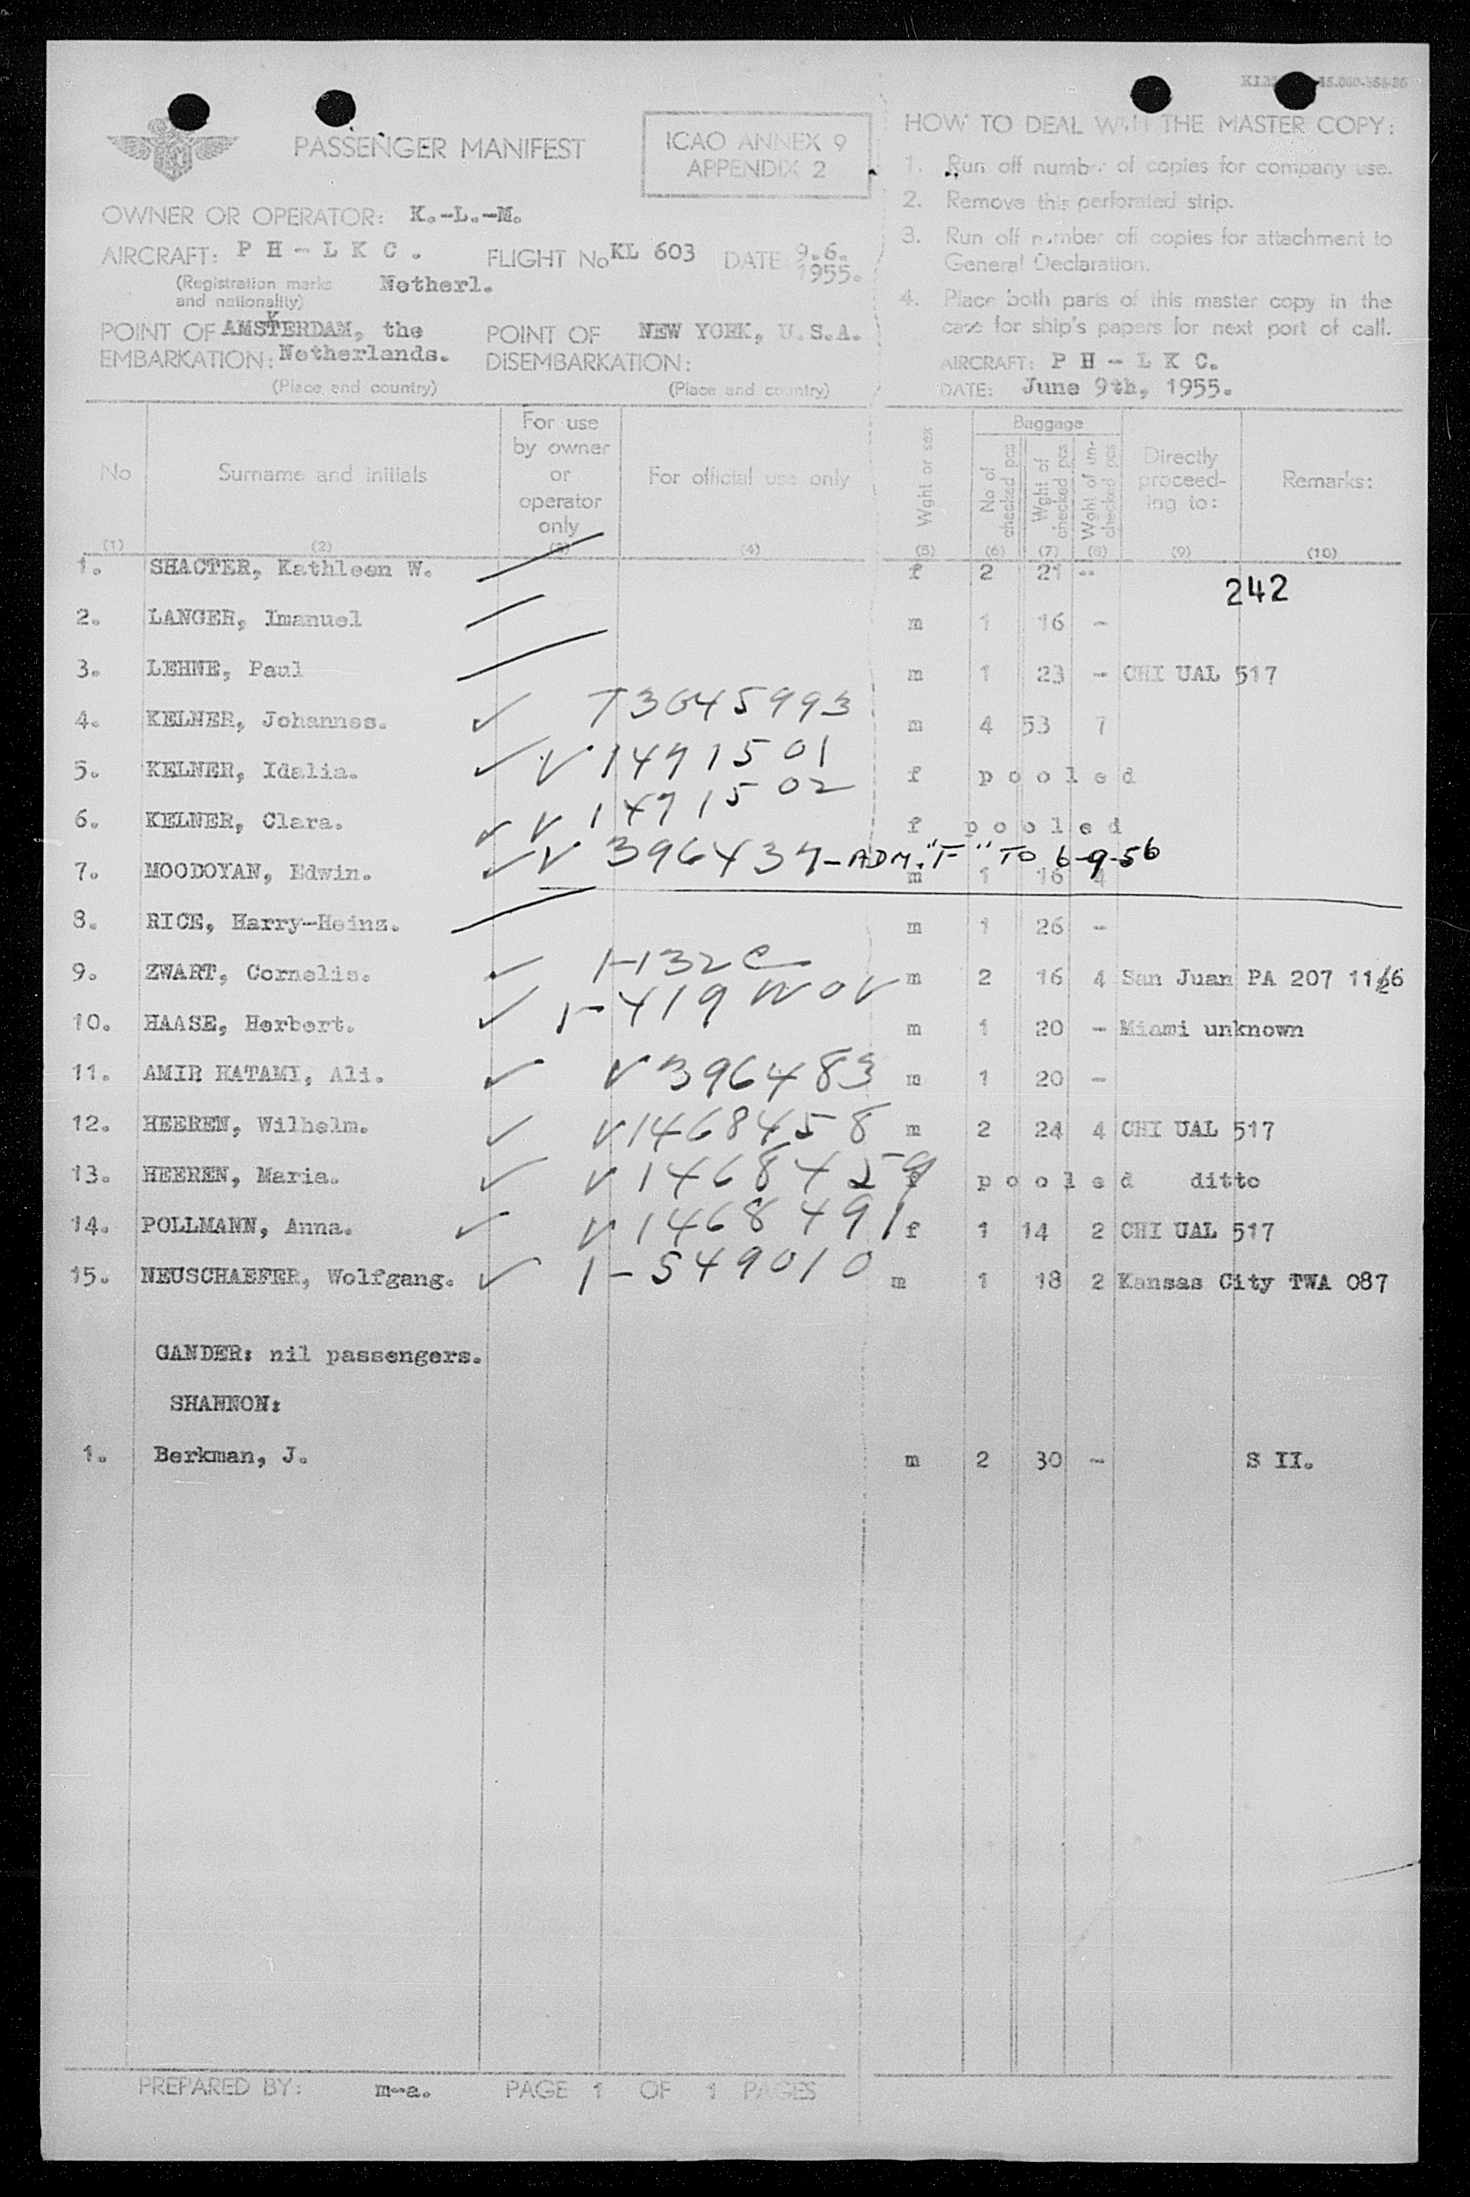 PASSENGER MANIFEST
ICAO ANNEX 9
APPENDIX 2
OWNER OR OPERATOR: K.-L.-M.
AIRCRAFT: P H - L K C .
FLIGHT No KL 603 DATE 9.6.
1955.
(Registration marks
and nationality)
Netherl.
POINT OF
EMBARKATION:
AMSTERDAM, the
Netherlands.
(Place and country)
POINT OF
DISEMBARKATION:
NEW YORK, U.S.A.
(Place and country)
HOW TO DEAL WITH THE MASTER COPY:
1. Run off number of copies for company use.
2. Remove this perforated strip.
3. Run off number off copies for attachment to
General Declaration.
4. Place both parts of this master copy in the
case for ship's papers for next port of call.
AIRCRAFT: P H - L K C.
DATE: June 9th, 1955.
No
(1)
Surname and initials
(2)
For use
by owner
or
operator
only
(3)
For official use only
(4)
Wght or sex
(5)
Baggage
No of
checked pcs
(6)
Wght of
checked pcs
(7)
Wght of un-
checked pcs
(8)
Directly
proceed-
ing to:
(9)
Remarks:
(10)
1. SHACTER, Kathleen W. f 2 21 --
242
2. LANGER, Imanuel m 1 16 -
3. LEHNE, Paul m 1 23 - CHI UAL 517
4. KELNER, Johannes. ✓ T3645993 m 4 53 7
5. KELNER, Idalia. ✓ V 1471501 f p o o l e d
6. KELNER, Clara. ✓ V 1471502 f p o o l e d
7. MOODOYAN, Edwin. ✓ V 396437 - ADM. "F" TO 6-9-56 m 1 16 4
8. RICE, Harry-Heinz. m 1 26 -
9. ZWART, Cornelis. ✓ 1-132 C m 2 16 4 San Juan PA 207 11/6
10. HAASE, Herbert. ✓ 1-419 m 1 20 - Miami unknown
11. AMIR HATAMI, Ali. ✓ V 396483 m 1 20 -
12. HEEREN, Wilhelm. ✓ V 1468458 m 2 24 4 CHI UAL 517
13. HEEREN, Maria. ✓ V 1468459 f p o o l e d ditto
14. POLLMANN, Anna. ✓ V 1468491 f 1 14 2 CHI UAL 517
15. NEUSCHAEFER, Wolfgang. ✓ 1-549010 m 1 18 2 Kansas City TWA 087
GANDER: nil passengers.
SHANNON:
1. Berkman, J. m 2 30 - S II.
PREPARED BY: m-a. PAGE 1 OF 1 PAGES